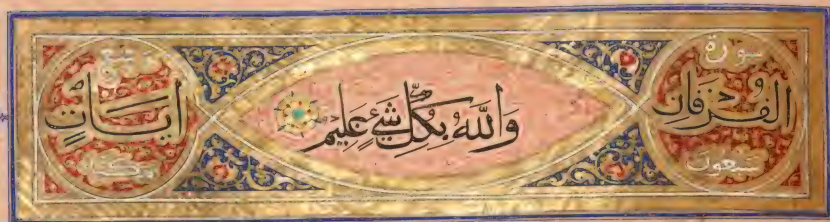 سورة
الفرقان
سبعون
وَاللَّهُ بِكُلِّ شَيْءٍ عَلِيمٌ
سبع
ايات
مكية